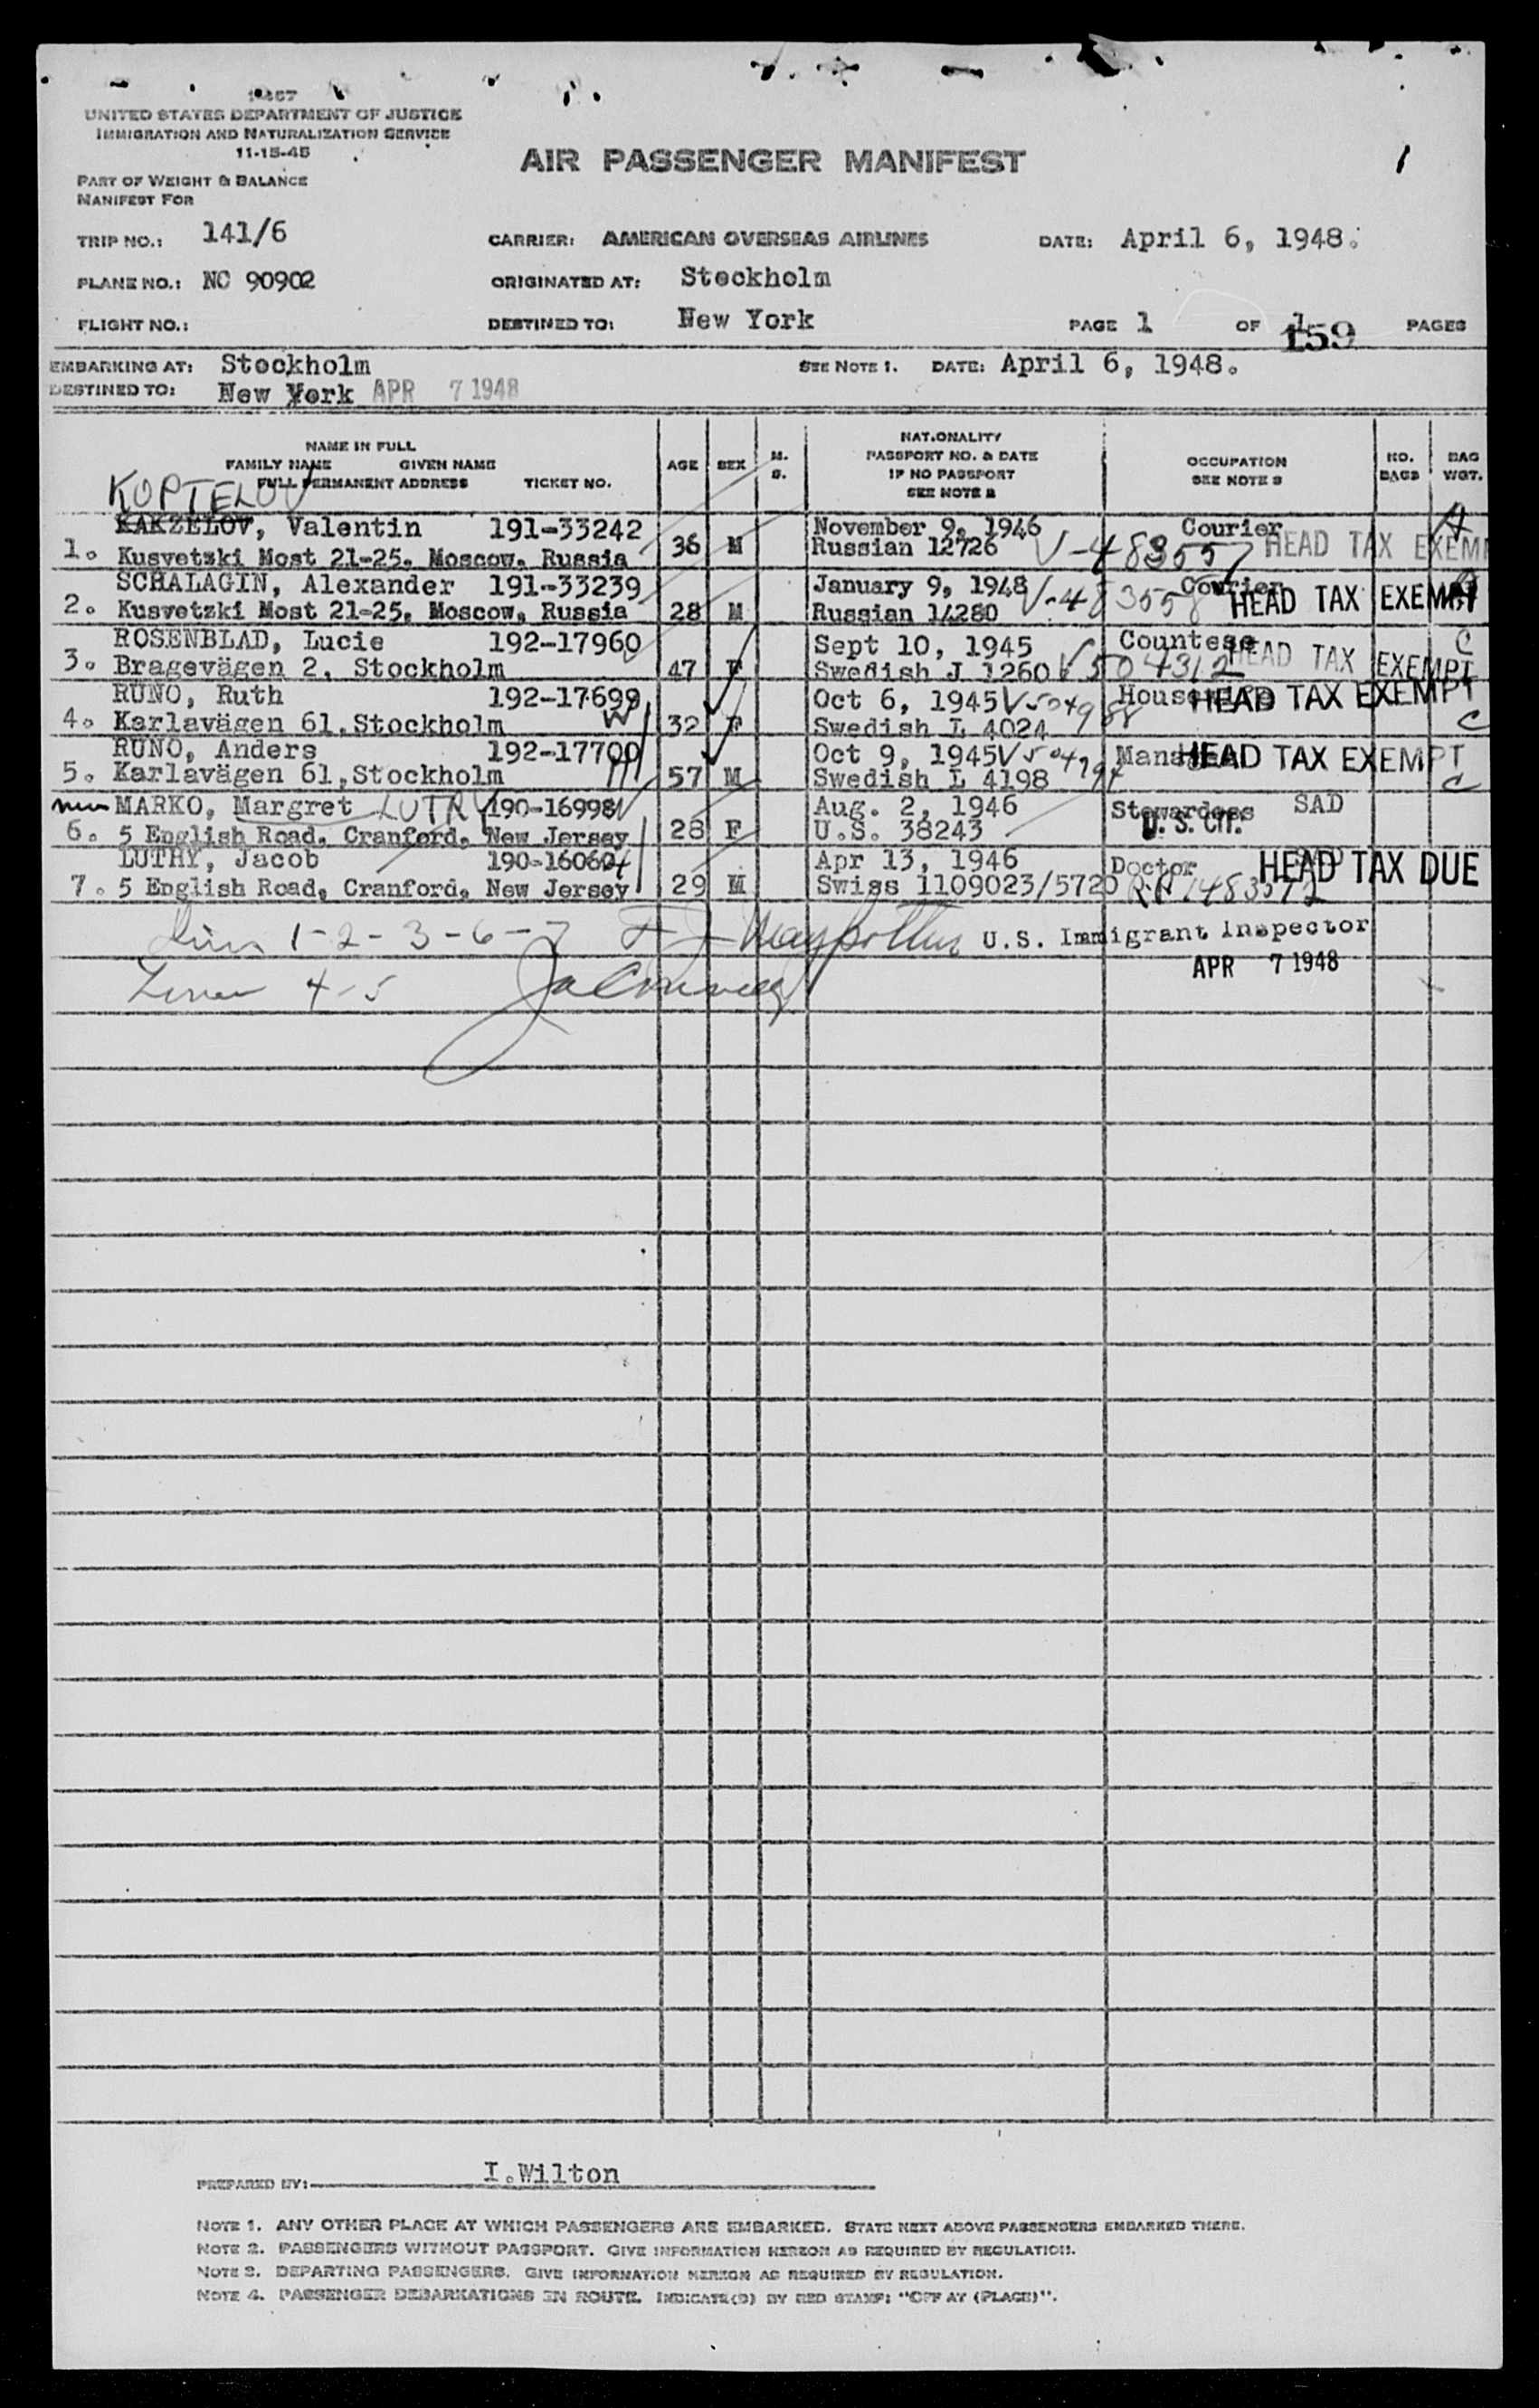 UNITED STATES DEPARTMENT OF JUSTICE
IMMIGRATION AND NATURALIZATION SERVICE
11-15-45
AIR PASSENGER MANIFEST
1
PART OF WEIGHT & BALANCE
MANIFEST FOR
TRIP NO.: 141/6 CARRIER: AMERICAN OVERSEAS AIRLINES DATE: April 6, 1948.
PLANE NO.: NC 90902 ORIGINATED AT: Stockholm
FLIGHT NO.: DESTINED TO: New York PAGE 1 OF 1 159 PAGES
EMBARKING AT: Stockholm SEE NOTE 1. DATE: April 6, 1948.
DESTINED TO: New York APR 7 1948
NAME IN FULL
FAMILY NAME GIVEN NAME
FULL PERMANENT ADDRESS TICKET NO.
AGE SEX M. S.
NATIONALITY
PASSPORT NO. & DATE
IF NO PASSPORT
SEE NOTE 2
OCCUPATION
SEE NOTE 3
NO. BAGS
BAG WGT.
KOPTELOV
KAKZELOV, Valentin 191-33242 November 9, 1946 Courier A
1. Kusvetzki Most 21-25, Moscow, Russia 36 M Russian 12726 V-483557 HEAD TAX EXEM
SCHALAGIN, Alexander 191-33239 January 9, 1948 V-483558 Courier A
2. Kusvetzki Most 21-25, Moscow, Russia 28 M Russian 14280 HEAD TAX EXEMPT
ROSENBLAD, Lucie 192-17960 Sept 10, 1945 Countess C
3. Bragevägen 2, Stockholm 47 F Swedish J 1260 V504312 HEAD TAX EXEMPT
RUNO, Ruth 192-17699 Oct 6, 1945 V504988 HEAD TAX EXEMPT
4. Karlavägen 61, Stockholm W 32 F Swedish L 4024 C
RUNO, Anders 192-17700 Oct 9, 1945 HEAD TAX EXEMPT
5. Karlavägen 61, Stockholm M 57 M Swedish L 4198 C
MARKO, Margret LUTRY 190-16998 W Aug. 2, 1946 Stewardess SAD
6. 5 English Road, Cranford, New Jersey 28 F U.S. 38243 U.S. CIT.
LUTHY, Jacob 190-16060 Apr 13, 1946 Doctor HEAD TAX DUE
7. 5 English Road, Cranford, New Jersey 29 M Swiss 1109023/5720
1-2-3-6-7 U.S. Immigrant Inspector
APR 7 1948
4-5
PREPARED BY: I.Wilton
NOTE 1. ANY OTHER PLACE AT WHICH PASSENGERS ARE EMBARKED. STATE NEXT ABOVE PASSENGERS EMBARKED THERE.
NOTE 2. PASSENGERS WITHOUT PASSPORT. GIVE INFORMATION HEREON AS REQUIRED BY REGULATION.
NOTE 3. DEPARTING PASSENGERS. GIVE INFORMATION HEREON AS REQUIRED BY REGULATION.
NOTE 4. PASSENGER DEBARKATIONS EN ROUTE. INDICATE(D) BY RED STAMP: "OFF AT (PLACE)".